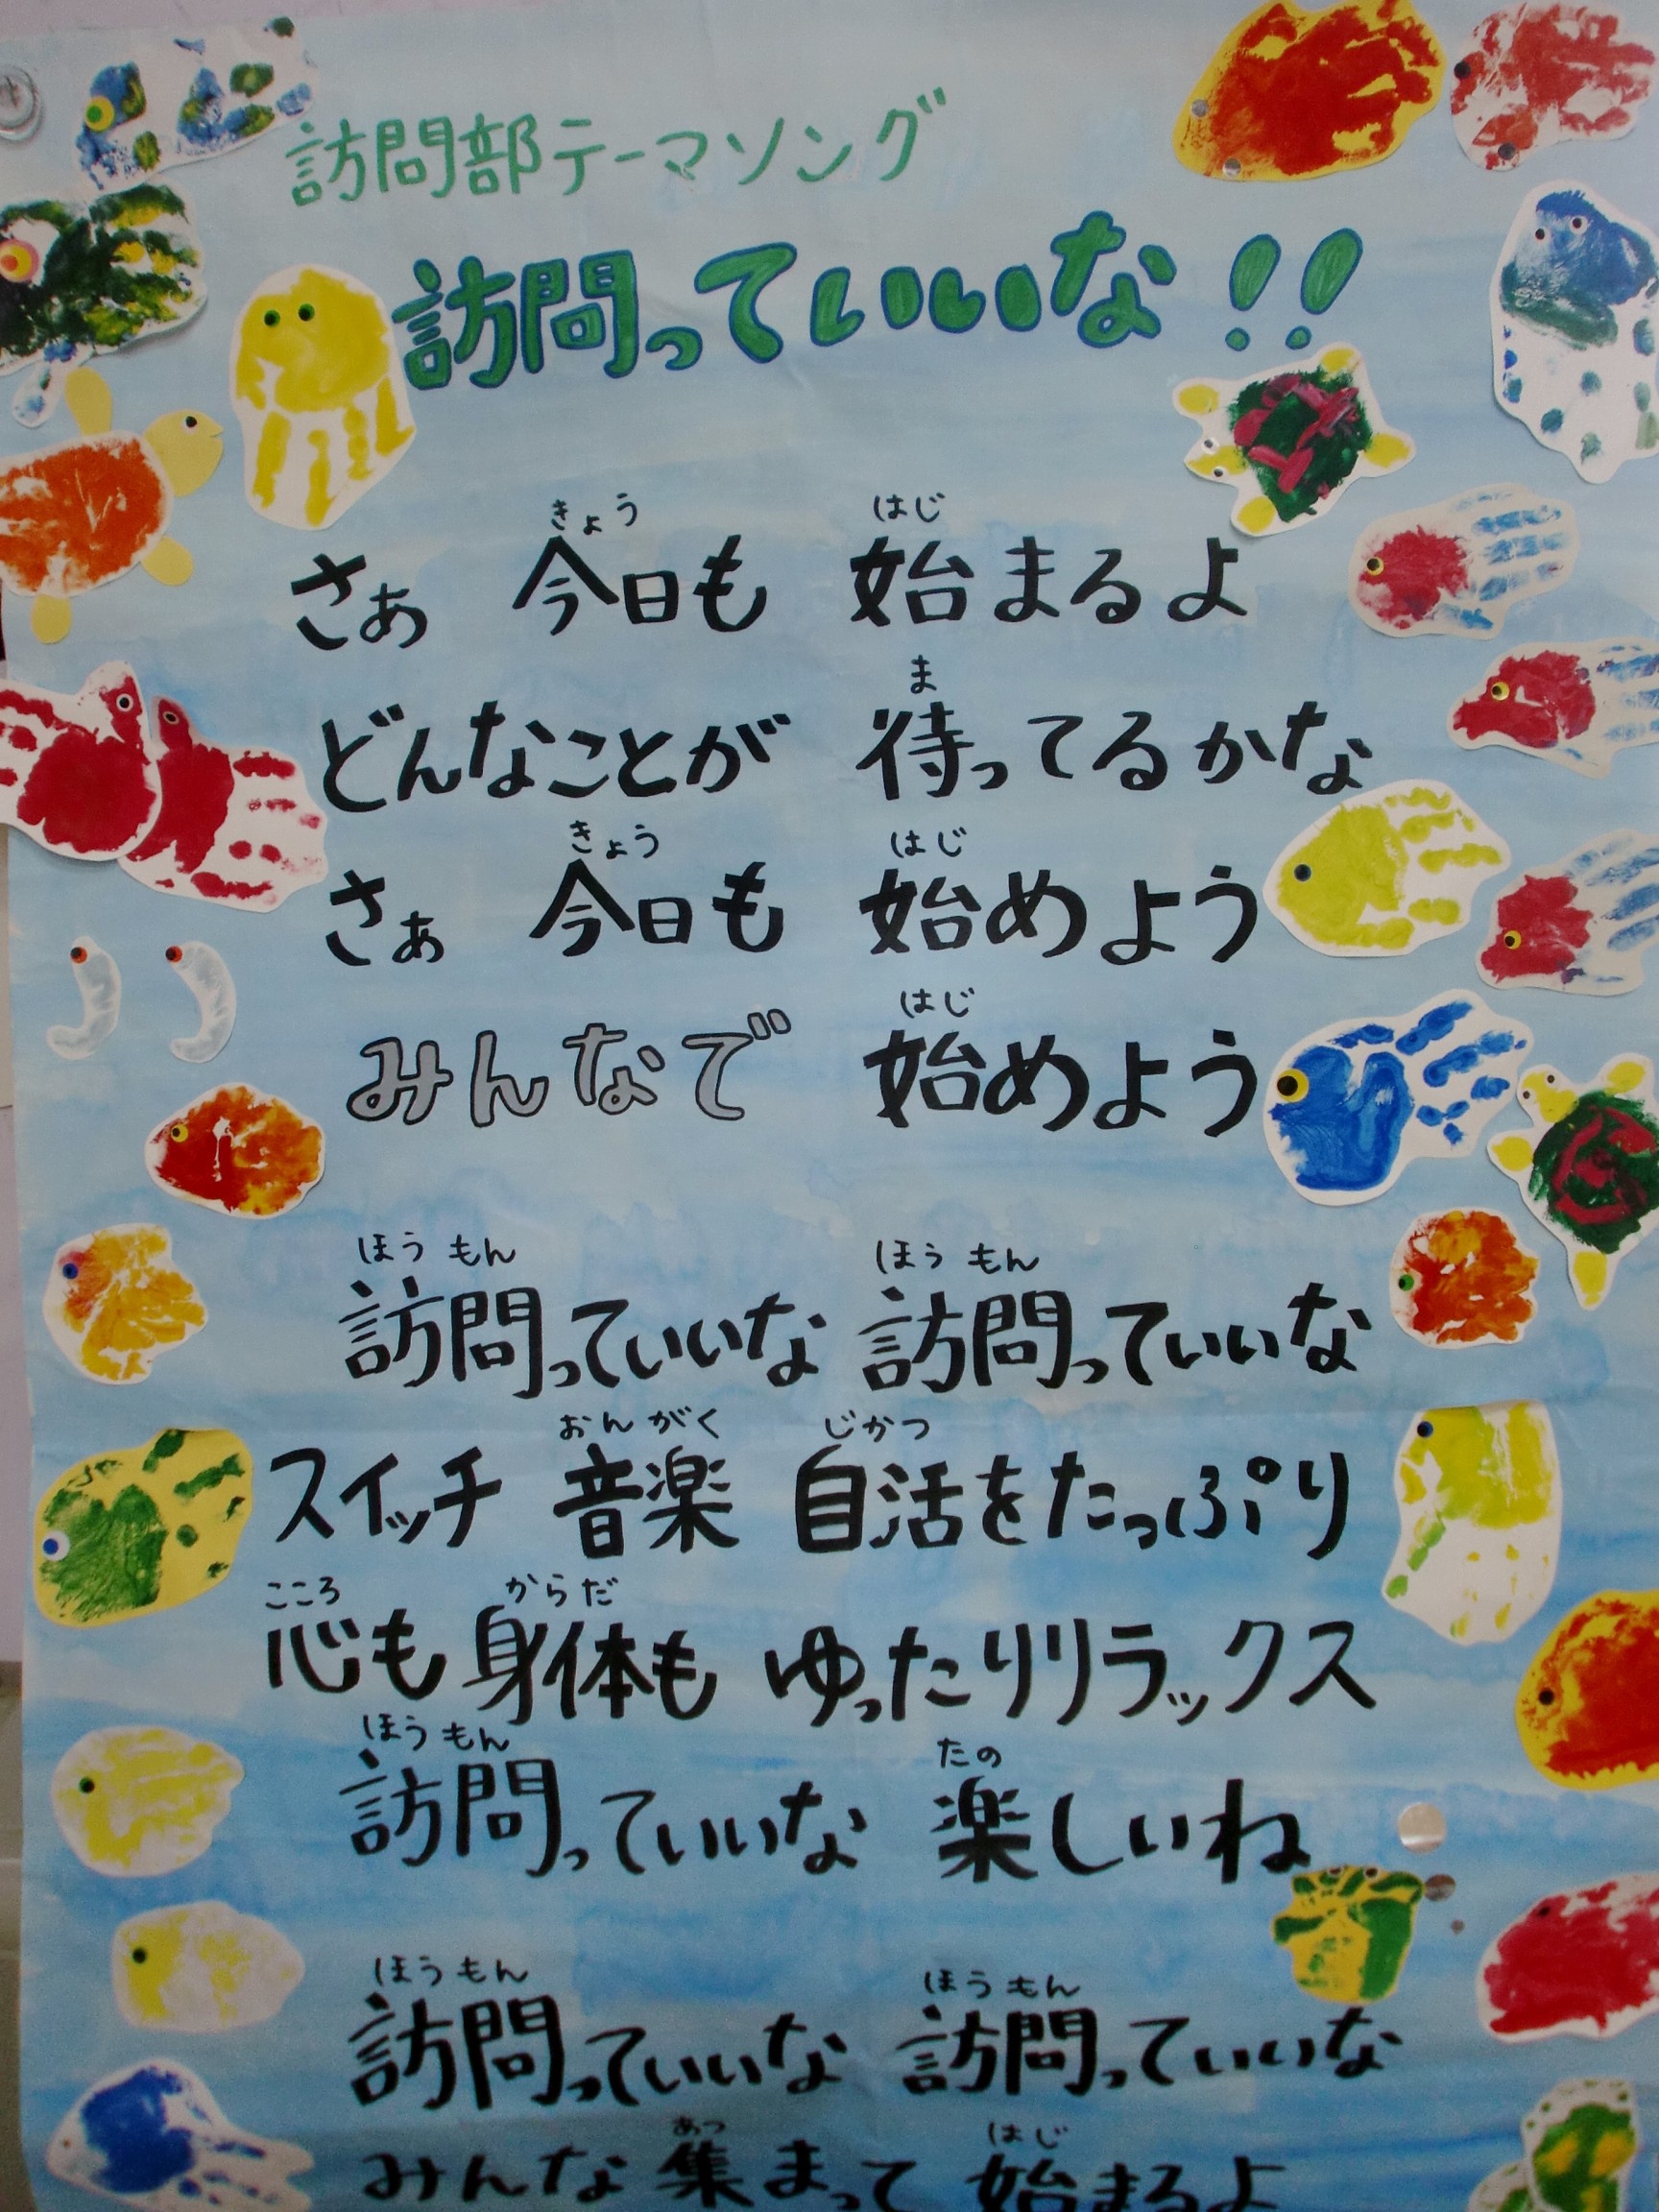 訪問部テーマソング
訪問っていいな!!
きょう はじ
さぁ 今日も 始まるよ
ま
どんなことが 待ってるかな
きょう はじ
さぁ 今日も 始めよう
はじ
みんなで 始めよう
ほうもん ほうもん
訪問っていいな 訪問っていいな
おんがく じかつ
スイッチ 音楽 自活をたっぷり
こころ からだ
心も身体も ゆったりリラックス
ほうもん たの
訪問っていいな 楽しいね
ほうもん ほうもん
訪問っていいな 訪問っていいな
あつ はじ
みんな集まって 始まるよ